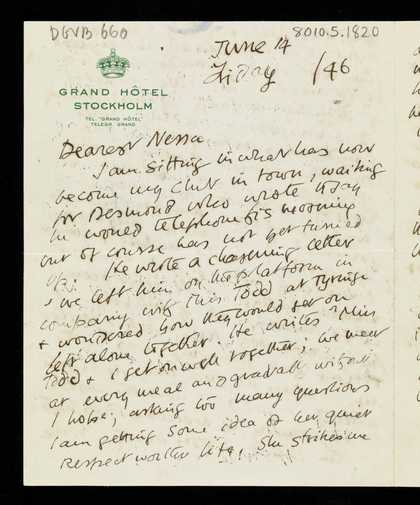 DGVB 660
8010.5.1820
June 14
Friday /46
GRAND HÔTEL
STOCKHOLM
TEL. "GRAND HÔTEL"
TELEGR. GRAND
Dearest Nessa
I am sitting in what has now
become my club in town, waiting
for Desmond who wrote to say
he would telephone this morning
but of course has not yet turned
up. He wrote a charming letter
we left him on the platform in
company with Miss Todd at Tyringe
& wondered how they would get on
left alone together. He writes "Miss
Todd & I get on well together; we meet
at every meal and gradually without
I hope, asking too many questions
I am getting some idea of her quiet
respect worthy life. She strikes me